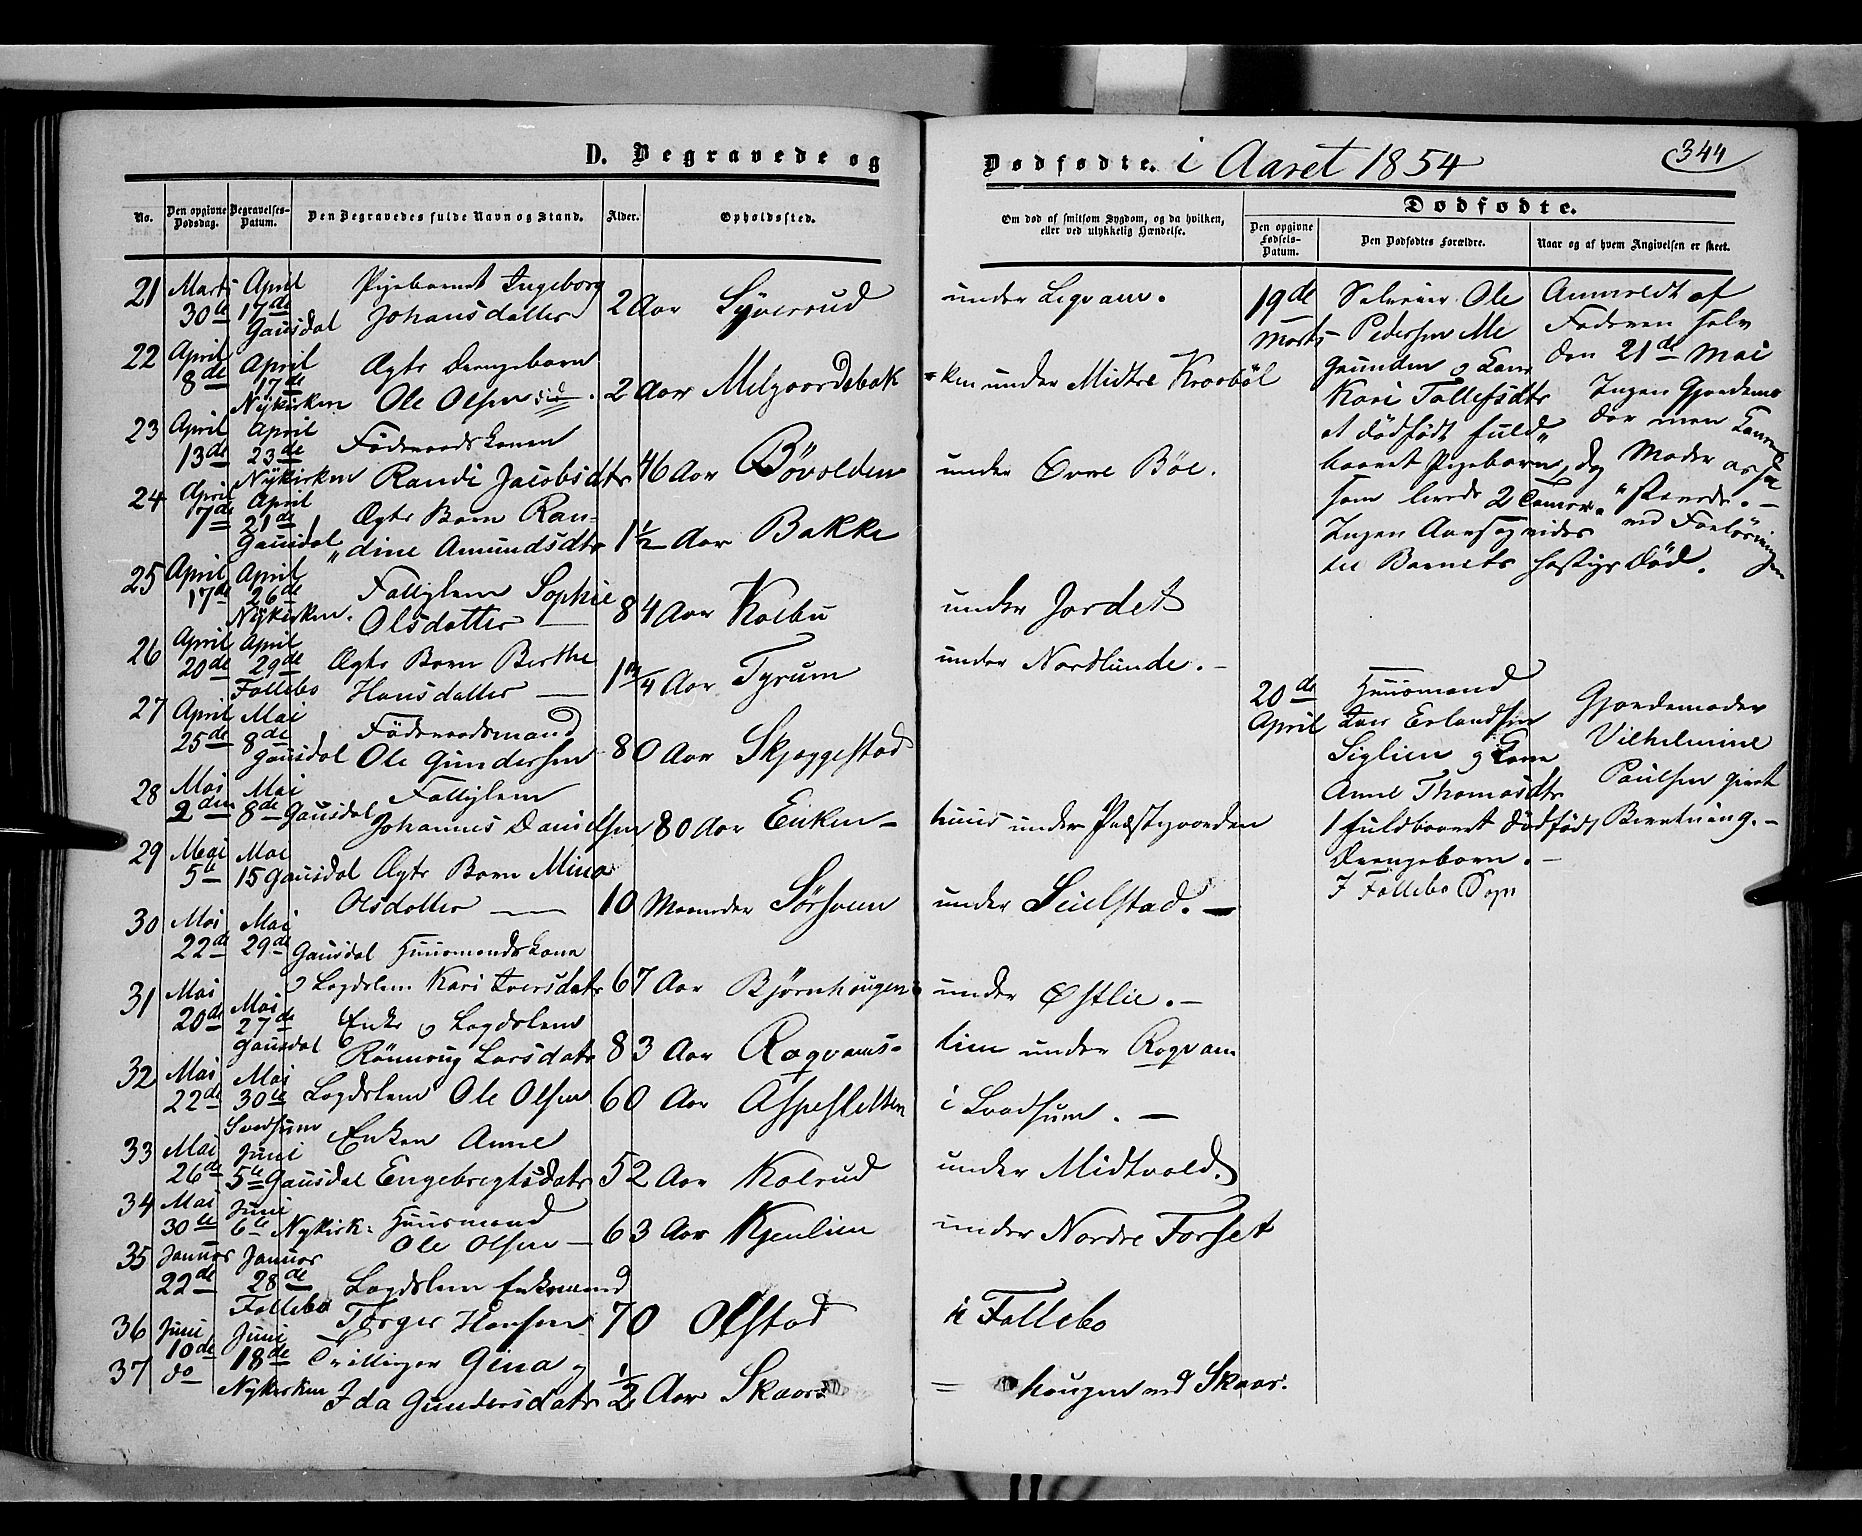 D. Begravede og Dødfødte. i Aaret 1854
344
No.
Den opgivne Dødsdag.
Begravelses-Datum.
Den Begravedes fulde Navn og Stand.
Alder.
Opholdssted.
Om død af smitsom Sygdom, og da hvilken, eller ved ulykkelig Hændelse.
Dødfødte.
Den opgivne Fødsels-Datum.
Den Dødfødtes Forældre.
Naar og af hvem Angivelsen er skeet.
21 Marts April Pigebarnet Ingeborg
30te 17de Gausdal Johansdatter 2 Aar Syverud under Leqvam.
22 April April Ægte Drengebarn
8de 17de Nykirken Ole Olsen 2 Aar Melgaardsbak=ken under Midtre Kraabøl
23 April April Föderaadskonen
13de 23de Nykirken Randi Jacobsdtr 46 Aar Bövolden under Övre Böe.
24 April April Ægte Barn Ran=
7de 21de Gausdal "dine Amundsdtr 1½ Aar Bakke
25 April April Fattiglem Sophie
17de 26de Nykirken. Olsdatter 84 Aar Kolbu under Jordet
26 April April Ægte Barn Berthe
20de 29de Follebo Hansdatter 1¾ Aar Tyrum under Nordlunde.
27 April Mai Föderaadsmand
25de 8de Gausdal Ole Gundersen 80 Aar Skjæggestad
28 Mai Mai Fattiglem
2den 8de Gausdal Johannes Danielsen 80 Aar Enken- huus under Præstegaarden
29 Mai Mai
5te 15 Gausdal Ægte Barn Mina
Olsdatter 10 Maaneder Sörsveen under Seielstad.
30 Mai Mai
22de 29de Gausdal Huusmandskone
og Lægdslem Kari Iversdatr 67 Aar Björnhougen under Östlie.
31 Mai Mai
20de 27de Enke og Lægdslem
Gausdal Rönnoug Larsdatr 83 Aar Roqvams- lien under Roqvam
32 Mai Mai
22de 30te Svadsum Lægdslem Ole Olsen 60 Aar Aspesletten i Svadsum.
33 Mai Juni Enken Anne
26de 5te Gausdal Engebregtsdatr 52 Aar Kolrud under Midtvold.
34 Mai Juni
30te 6te Nykirk: Huusmand
Ole Olsen 63 Aar Kjenlien under Nordre Forset
35 Januar Januar
22de 28de Lægdslem Enkemand
Follebo Torger Hansen 70 Olstad i Follebo
36 Juni Juni
10de 18de Tvillinger Gina og
37 do Nykirken Ida Gundersdatr ½ Aar Skaar= =hougen ved Skaar.
19de Marts
Selveier Ole
Pedersen Me
grunden og Kone
Kari Tollefsdtr
et dödfödt fuld"
baaret Pigebarn, dog
som levede 2 Timer.
Ingen Aarsag vides
til Barnets hastige Död.
Anmeldt af
Faderen selv
den 21de Mai
Ingen Gjordemo
der men Konens
Moder
ved Forlösningen
20de April
Huusmand
Iver Erlandsen
Siglien og Kone
Anne Thomasdtr
1 fuldbaaret dödfödt
Drengebarn.
I Follebo Sogn
Gjordemoder
Vilhelmine
Paulsen givet
Beretning.